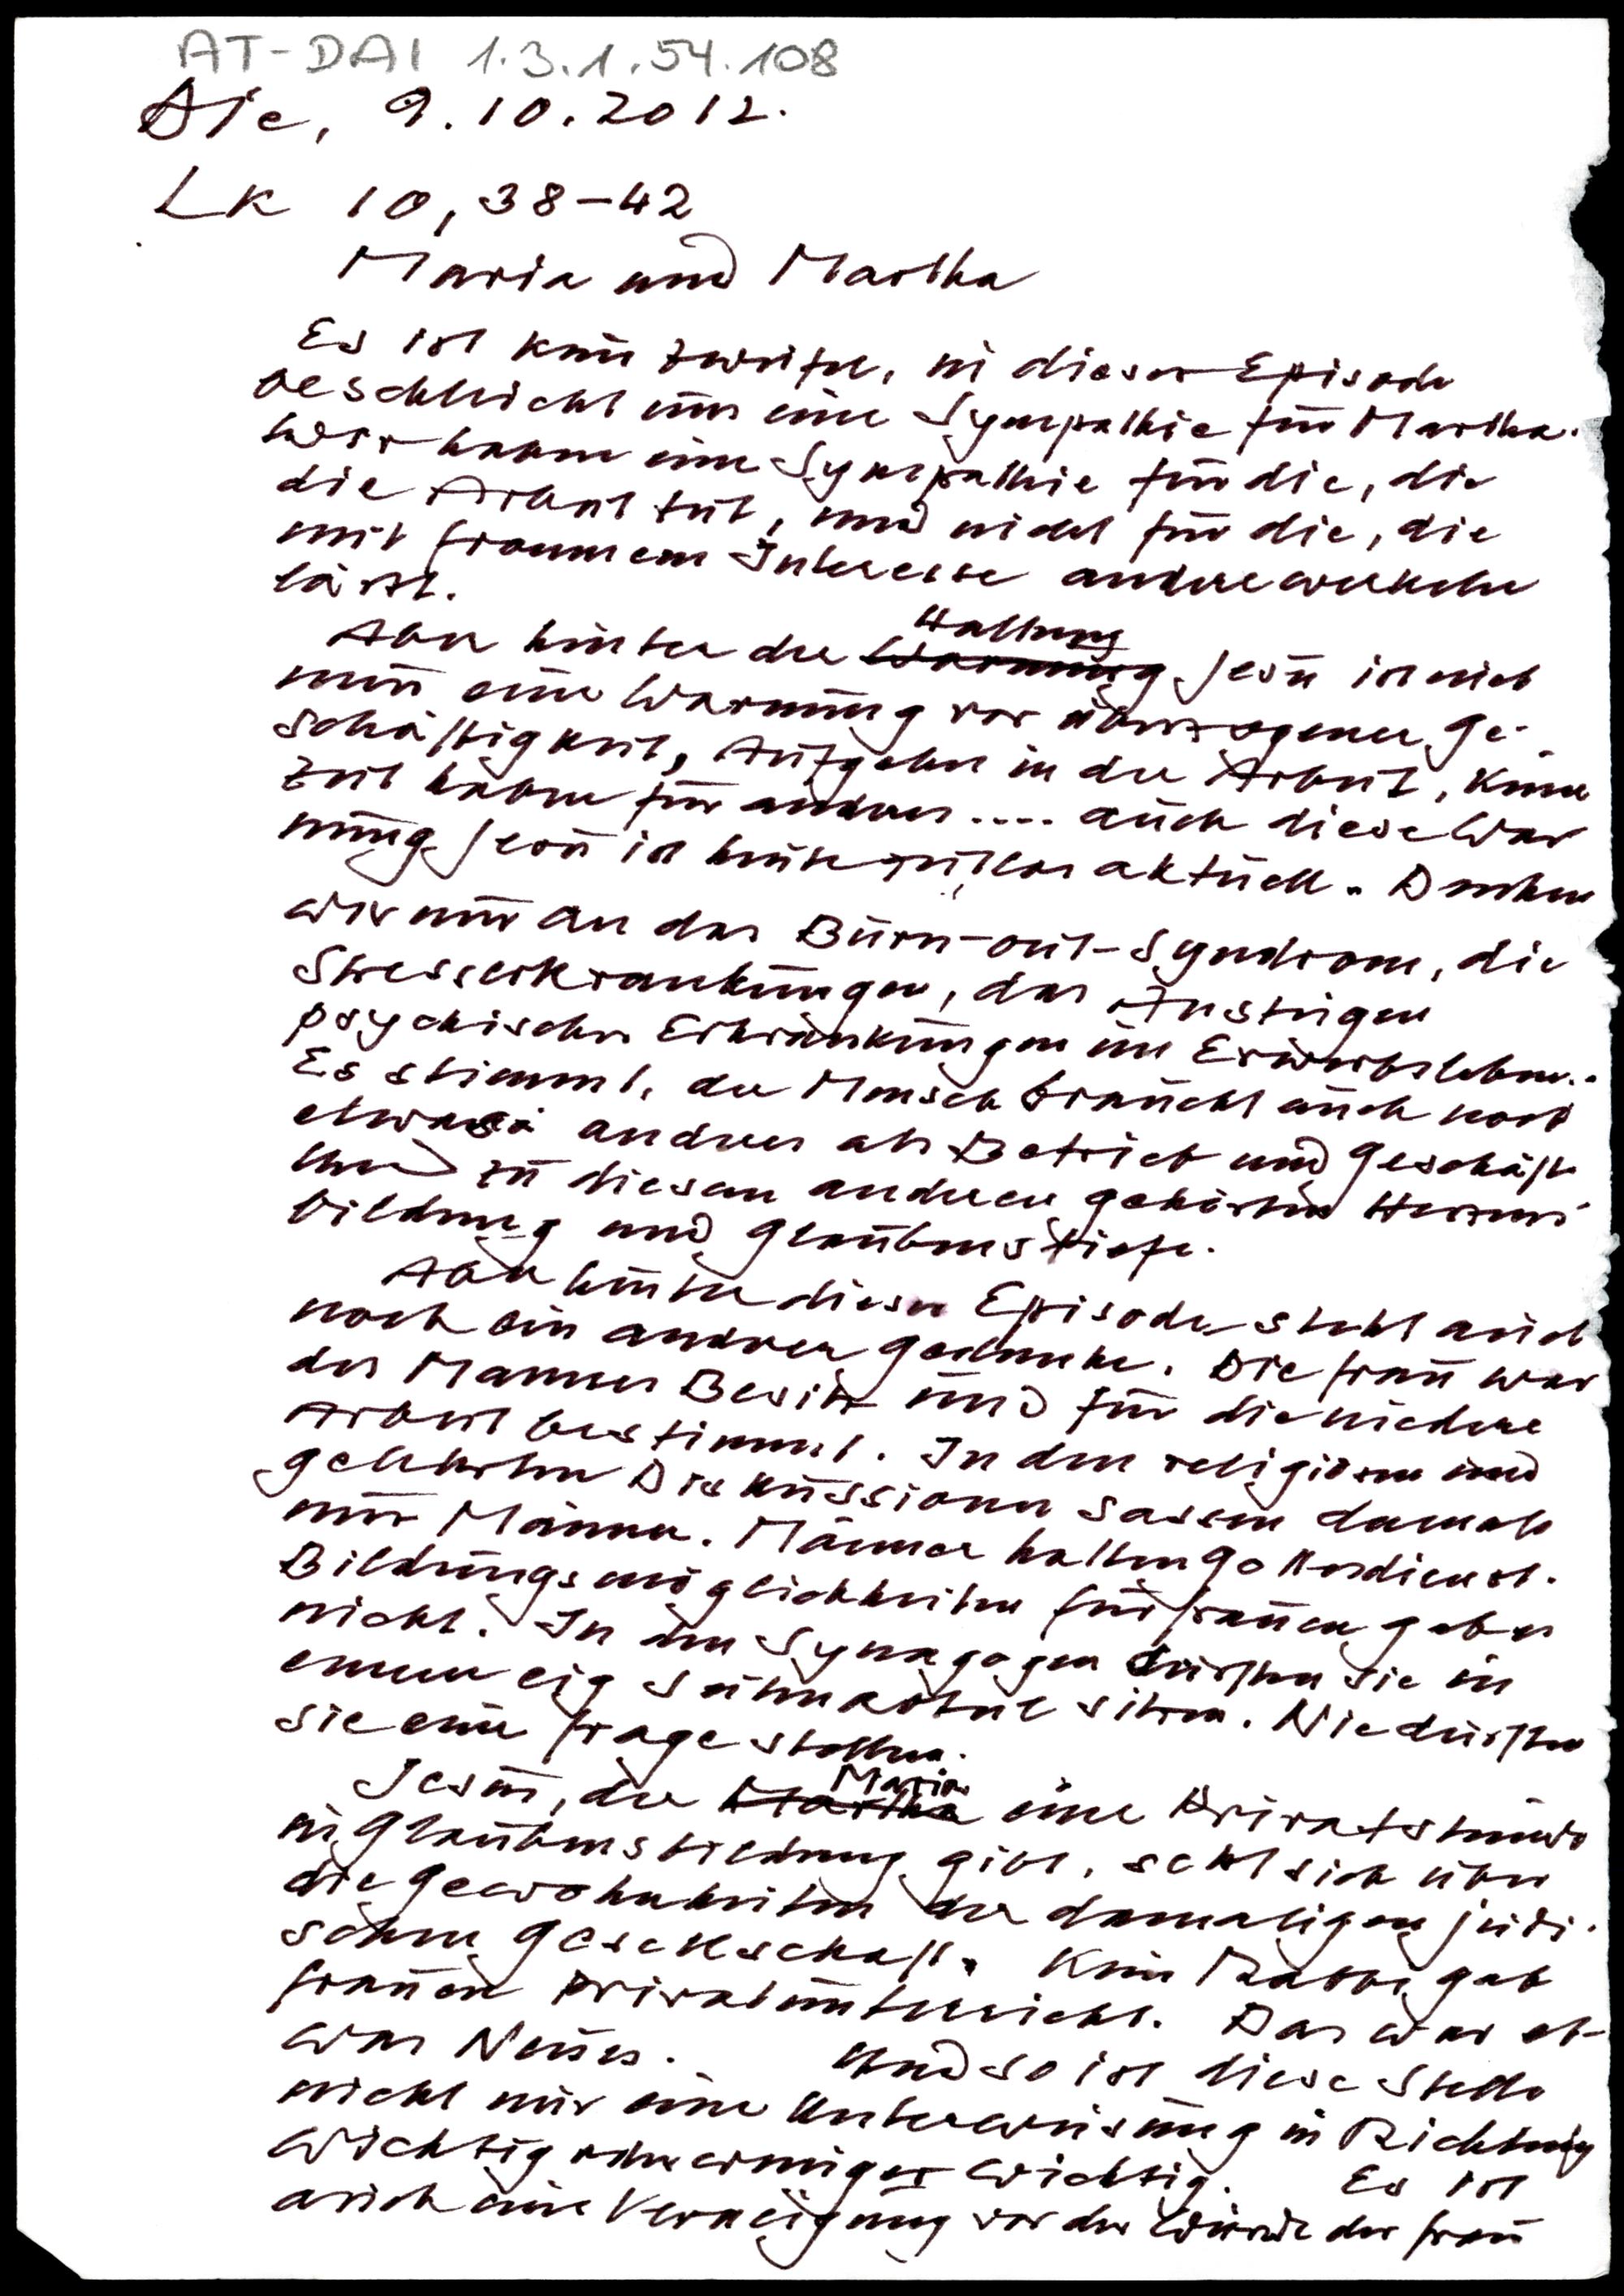 AT-DAI 1.3.1.54.108
Die, 9.10.2012.
Lk 10, 38-42
Maria und Martha
Es ist kein Zweifel, in dieser Episode
beschleicht uns eine Sympathie für Martha.
Wir haben eine Sympathie für die, die
die Arbeit tut, und nicht für die, die
mit frommem Interesse andere werkeln
lässt.
Aber hinter der Warnung Haltung Jesu ist nicht
nur eine Warnung vor überzogener Ge-
schäftigkeit, Aufgehen in der Arbeit, keine
Zeit haben für andere .... auch diese War
nung Jesu ist heute zeitlos aktuell. Denken
wir nur an das Burn-out-Syndrom, die
Stresserkrankungen, das Ansteigen
psychischer Erkrankungen im Erwerbsleben..
Es stimmt, der Mensch braucht auch noch
etwas anderes als Betrieb und Geschäft
Und zu diesem anderen gehören Herzens-
bildung und Glaubenstiefe.
Aber hinter dieser Episode steht auch
noch ein anderer Gedanke. Die Frau war
des Mannes Besitz und für die niedere
Arbeit bestimmt. In den religiösen und
gelehrten Diskussionen sassen damals
nur Männer. Männer halten Gottesdienst.
Bildungsmöglichkeiten für Frauen gab es
nicht. In den Synagogen durften sie in
einem eig Seitenabteil sitzen. Nie durften
sie eine Frage stellen.
Jesus, der Martha Maria eine Privatstunde
in Glaubensbildung gibt, setzt sich über
die Gewohnheiten der damaligen jüdi-
schen Gesellschaft. Kein Rabbi gab
Frauen Privatunterricht. Das war et-
was Neues. Und so ist diese Stelle
nicht nur eine Unterweisung in Richtung
wichtig oder weniger wichtig. Es ist
auch eine Verneigung vor der Würde der Frau